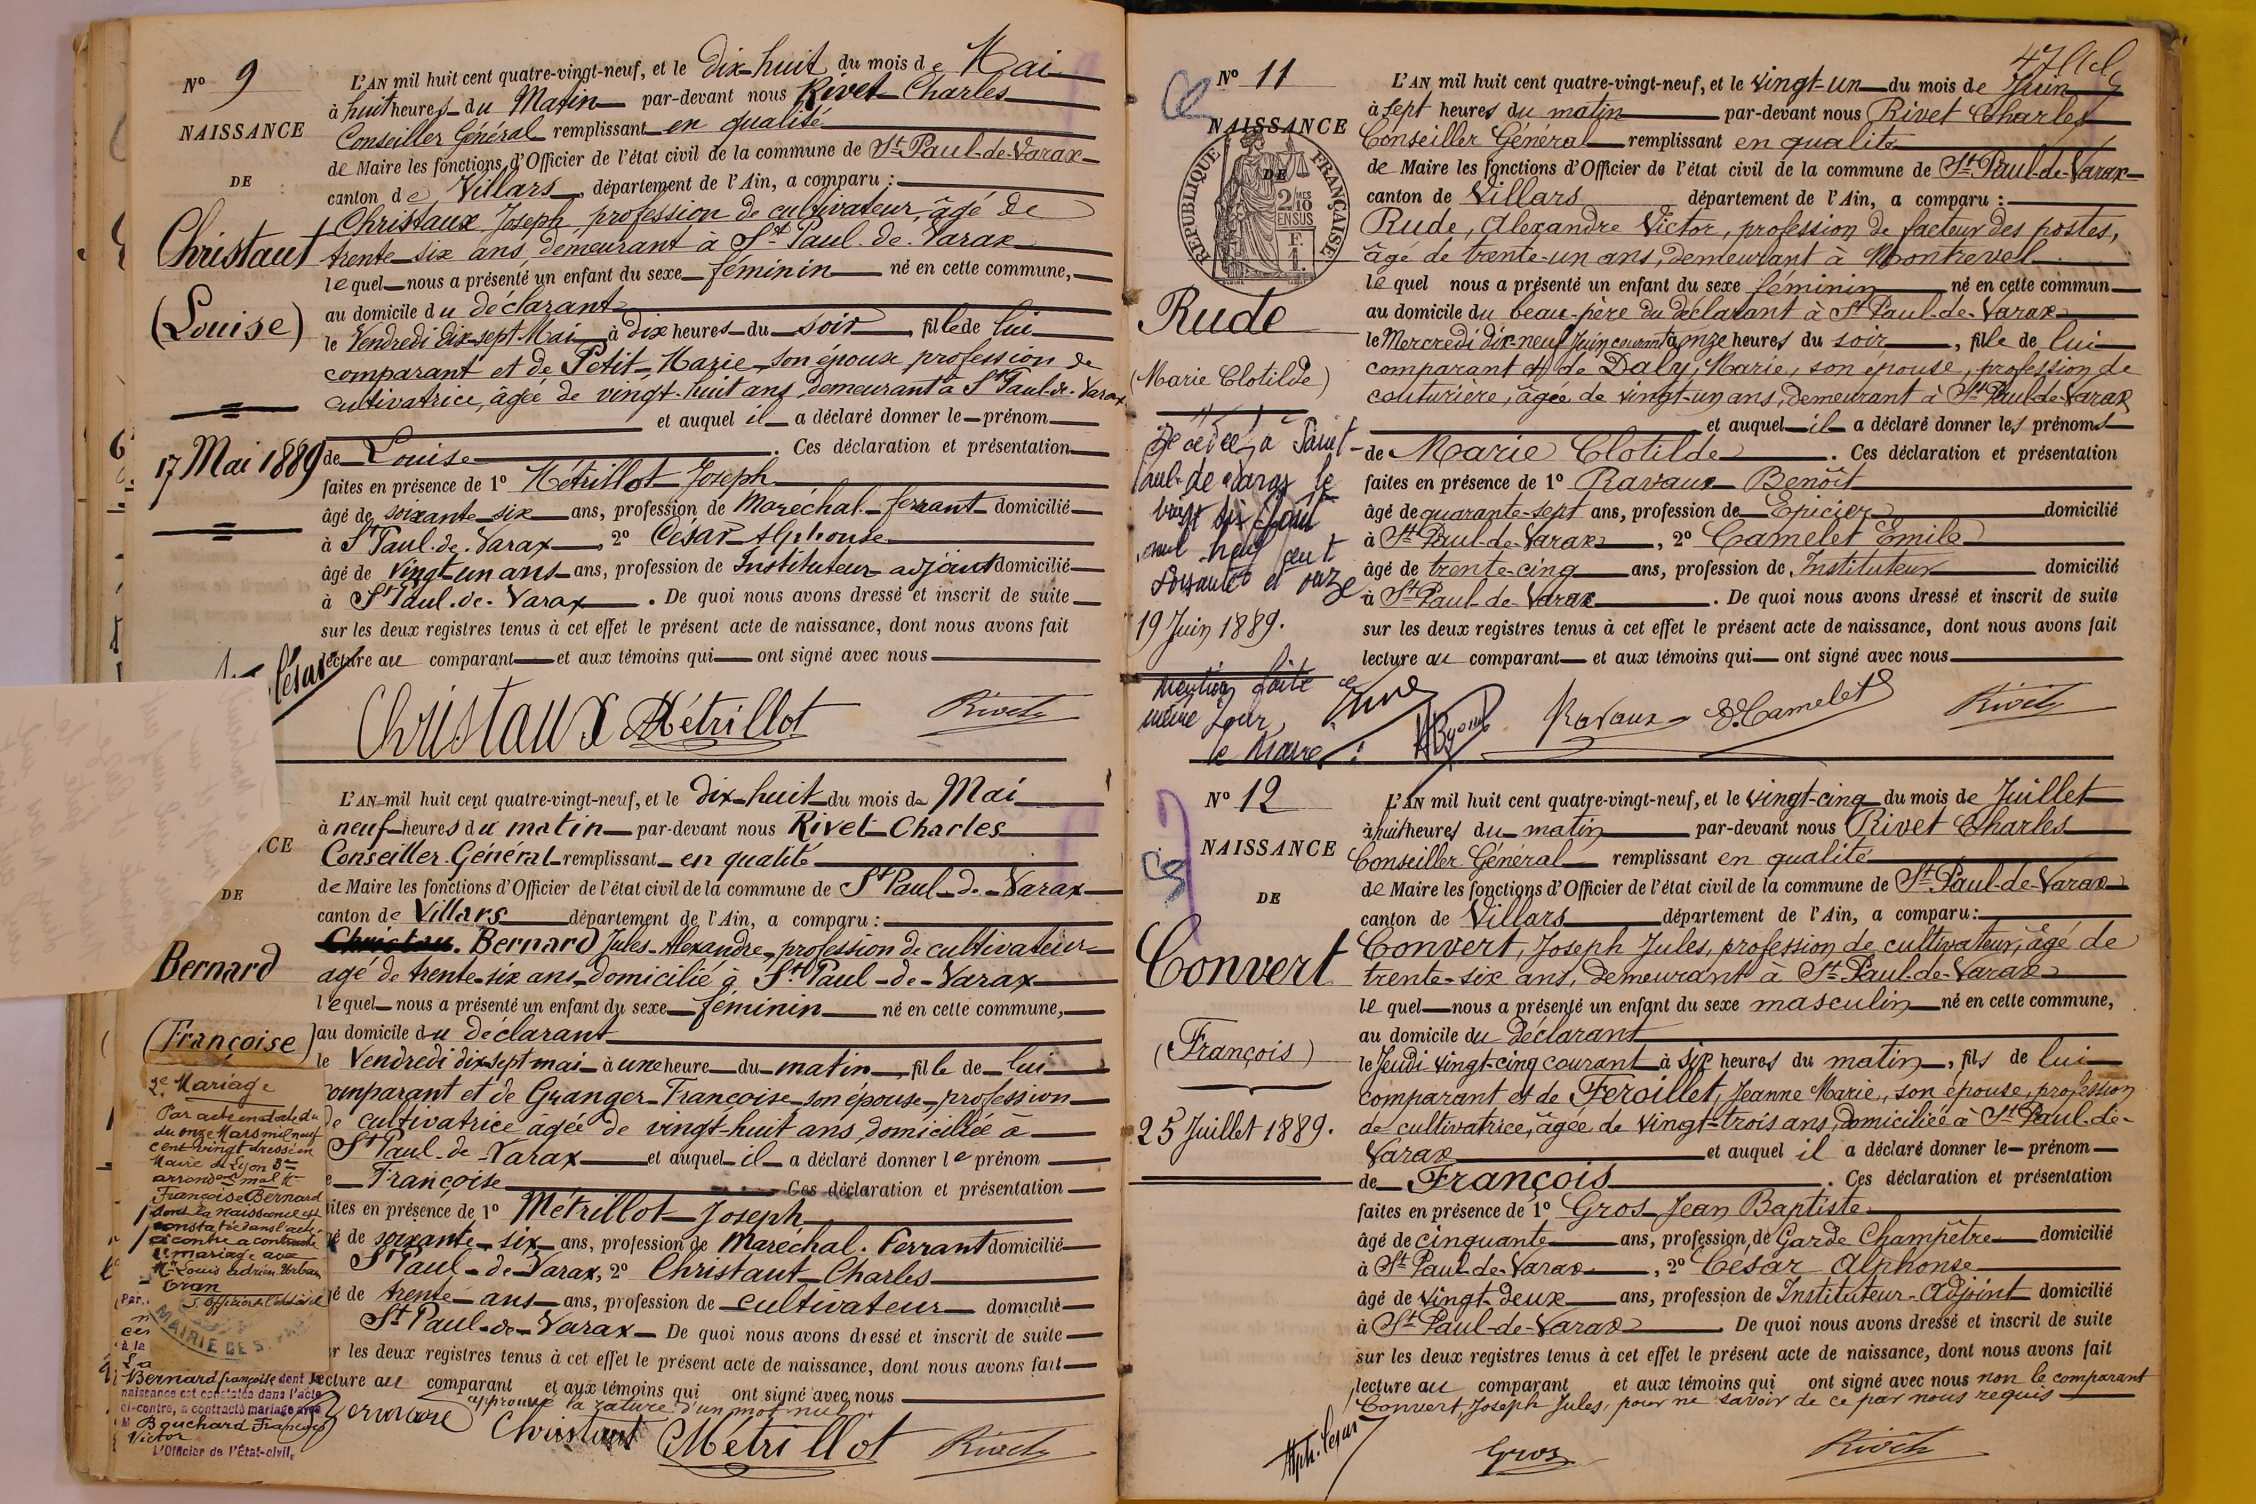 N° 9
NAISSANCE
DE
Christaut
(Louise)
17 Mai 1889
L'AN mil huit cent quatre-vingt-neuf, et le dix-huit du mois de Mai
à huit heures du Matin par-devant nous Rivet Charles
Conseiller Général remplissant en qualité
de Maire les fonctions d'Officier de l'état civil de la commune de St Paul-de-Varax
canton de Villars, département de l'Ain, a comparu :
Christaux Joseph, profession de cultivateur, âgé de
trente six ans, demeurant à St Paul-de-Varax
lequel nous a présenté un enfant du sexe féminin né en cette commune,
au domicile du déclarant
le Vendredi dix-sept Mai à dix heures du soir, fille de lui
comparant et de Petit Marie son épouse profession de
cultivatrice, âgée de vingt-huit ans, demeurant à St Paul-de-Varax
et auquel il a déclaré donner le prénom
de Louise. Ces déclaration et présentation
faites en présence de 1° Métrillot Joseph
âgé de soixante-six ans, profession de Maréchal-ferrant domicilié
à St Paul-de-Varax, 2° César Alphonse
âgé de vingt-un ans ans, profession de Instituteur adjoint domicilié
à St Paul-de-Varax. De quoi nous avons dressé et inscrit de suite
sur les deux registres tenus à cet effet le présent acte de naissance, dont nous avons fait
lecture au comparant et aux témoins qui ont signé avec nous
César
Christaux Métrillot Rivet
CE
DE
Bernard
(Françoise)
2e Mariage
Par acte en date du
du onze Mars mil neuf
cent vingt dressé en
Mairie de Lyon 3me
arrond
Françoise Bernard
dont la naissance est
constatée dans l'acte
ci contre a contracté
mariage avec
Mr Louis Adrien Urbain
Oran
L'Officier de l'état civil
MAIRIE DE S
Par
ces
à la
Bernard françoise dont la
naissance est constatée dans l'acte
ci-contre, a contracté mariage avec
M Bouchard François
Victor
L'Officier de l'État-civil,
L'AN mil huit cent quatre-vingt-neuf, et le dix-huit du mois de Mai
à neuf heures du matin par-devant nous Rivet Charles
Conseiller Général remplissant en qualité
de Maire les fonctions d'Officier de l'état civil de la commune de St Paul-de-Varax
canton de Villars département de l'Ain, a comparu :
Christau. Bernard Jules-Alexandre, profession de cultivateur
agé de trente-six ans domicilié à St Paul-de-Varax
lequel nous a présenté un enfant du sexe féminin né en cette commune,
au domicile du déclarant
le Vendredi dix-sept mai à une heure du matin, fille de lui
comparant et de Granger Françoise son épouse profession
de cultivatrice âgée de vingt-huit ans domiciliée à
St Paul-de-Varax et auquel il a déclaré donner le prénom
e Françoise Ces déclaration et présentation
ites en présence de 1° Métrillot Joseph
é de soixante-six ans, profession de Maréchal. Ferrant domicilié
St Paul-de-Varax, 2° Christaut Charles
gé de trente ans ans, profession de cultivateur domicilié
St Paul-de-Varax De quoi nous avons dressé et inscrit de suite
r les deux registres tenus à cet effet le présent acte de naissance, dont nous avons fait
lecture au comparant et aux témoins qui ont signé avec nous
approuvé la rature d'un mot nul
Bernard Christaut Métrillot Rivet
N° 11
NAISSANCE
DE
RÉPUBLIQUE FRANÇAISE
2 MES
10
EN SUS
Rude
(Marie Clotilde)
Décédée à Saint-
Paul-de-Varax le
vingt six Août
mil neuf cent
soixante et onze
19 Juin 1889.
Mention faite ce
même jour,
le Maire :
L'AN mil huit cent quatre-vingt-neuf, et le vingt-un du mois de Juin
à sept heures du matin par-devant nous Rivet Charles
Conseiller Général remplissant en qualité
de Maire les fonctions d'Officier de l'état civil de la commune de St Paul-de-Varax
canton de Villars département de l'Ain, a comparu :
Rude, Alexandre Victor, profession de facteur des postes,
âgé de trente-un ans, demeurant à Montrevel
lequel nous a présenté un enfant du sexe féminin né en cette commun
au domicile du beau-père du déclarant à St Paul-de-Varax
le Mercredi dix-neuf Juin courant à onze heures du soir, fille de lui
comparant et de Daly, Marie, son épouse, profession de
couturière, âgée de vingt-un ans, demeurant à St Paul-de-Varax
et auquel il a déclaré donner les prénoms
de Marie Clotilde. Ces déclaration et présentation
faites en présence de 1° Ravaux Benoît
âgé de quarante-sept ans, profession de Epicier domicilié
à St Paul-de-Varax, 2° Camelet Emile
âgé de trente-cinq ans, profession de Instituteur domicilié
à St Paul-de-Varax. De quoi nous avons dressé et inscrit de suite
sur les deux registres tenus à cet effet le présent acte de naissance, dont nous avons fait
lecture au comparant et aux témoins qui ont signé avec nous
Rude Ravaux E. Camelet Rivet
N° 12
NAISSANCE
DE
Convert
(François)
25 Juillet 1889.
L'AN mil huit cent quatre-vingt-neuf, et le vingt-cinq du mois de Juillet
à huit heures du matin par-devant nous Rivet Charles
Conseiller Général remplissant en qualité
de Maire les fonctions d'Officier de l'état civil de la commune de St Paul-de-Varax
canton de Villars département de l'Ain, a comparu :
Convert, Joseph Jules, profession de cultivateur, âgé de
trente-six ans, demeurant à St Paul-de-Varax
lequel nous a présenté un enfant du sexe masculin né en cette commune,
au domicile du déclarant
le Jeudi vingt-cinq courant à six heures du matin, fils de lui
comparant et de Feroillet, Jeanne Marie, son épouse, profession
de cultivatrice, âgée de vingt-trois ans, domiciliée à St Paul-de-
Varax et auquel il a déclaré donner le prénom
de François. Ces déclaration et présentation
faites en présence de 1° Gros Jean Baptiste
âgé de cinquante ans, profession de Garde Champêtre domicilié
à St Paul-de-Varax, 2° César Alphonse
âgé de vingt-deux ans, profession de Instituteur-Adjoint domicilié
à St Paul-de-Varax. De quoi nous avons dressé et inscrit de suite
sur les deux registres tenus à cet effet le présent acte de naissance, dont nous avons fait
lecture au comparant et aux témoins qui ont signé avec nous non le comparant
Convert, Joseph Jules, pour ne savoir de ce par nous requis
Alph. César Gros Rivet